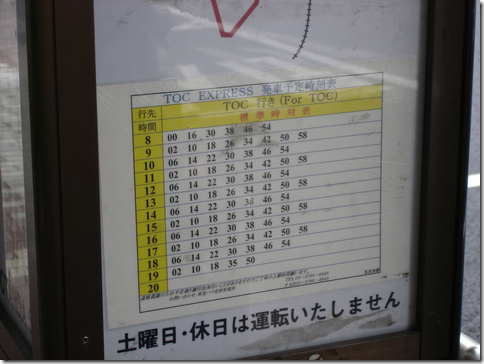 TOC EXPRESS 発車予定時刻表
行先 TOC 行き(For TOC)
時間 標準時刻表
8 00 16 30 38 46 54
9 02 10 18 26 34 42 50 58
10 06 14 22 30 38 46 54
11 02 10 18 26 34 42 50 58
12 06 14 22 30 38 46 54
13 02 10 18 26 34 42 50 58
14 06 14 22 30 38 46 54
15 02 10 18 26 34 42 50 58
16 06 14 22 30 38 46 54
17 02 10 18 26 34 42 50 58
18 06 14 22 30 38 46 54
19 02 10 18 35 50
20
土曜日・休日は運転いたしません